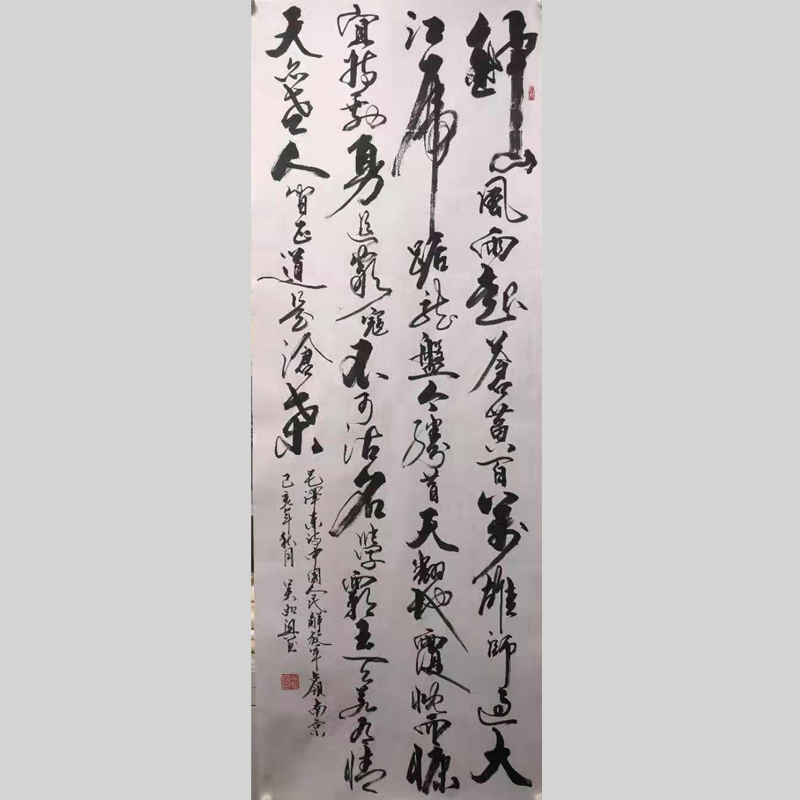 鈡山風雨起蒼黄百萬雄師過大
江虎踞龍盤今勝昔天翻地覆慨而慷
宜將剩勇追窮寇不可沽名學霸王天若有情
天亦老人間正道是滄桑
毛澤東詩中國人民解放軍占領南京
己亥年秋月 吴如書